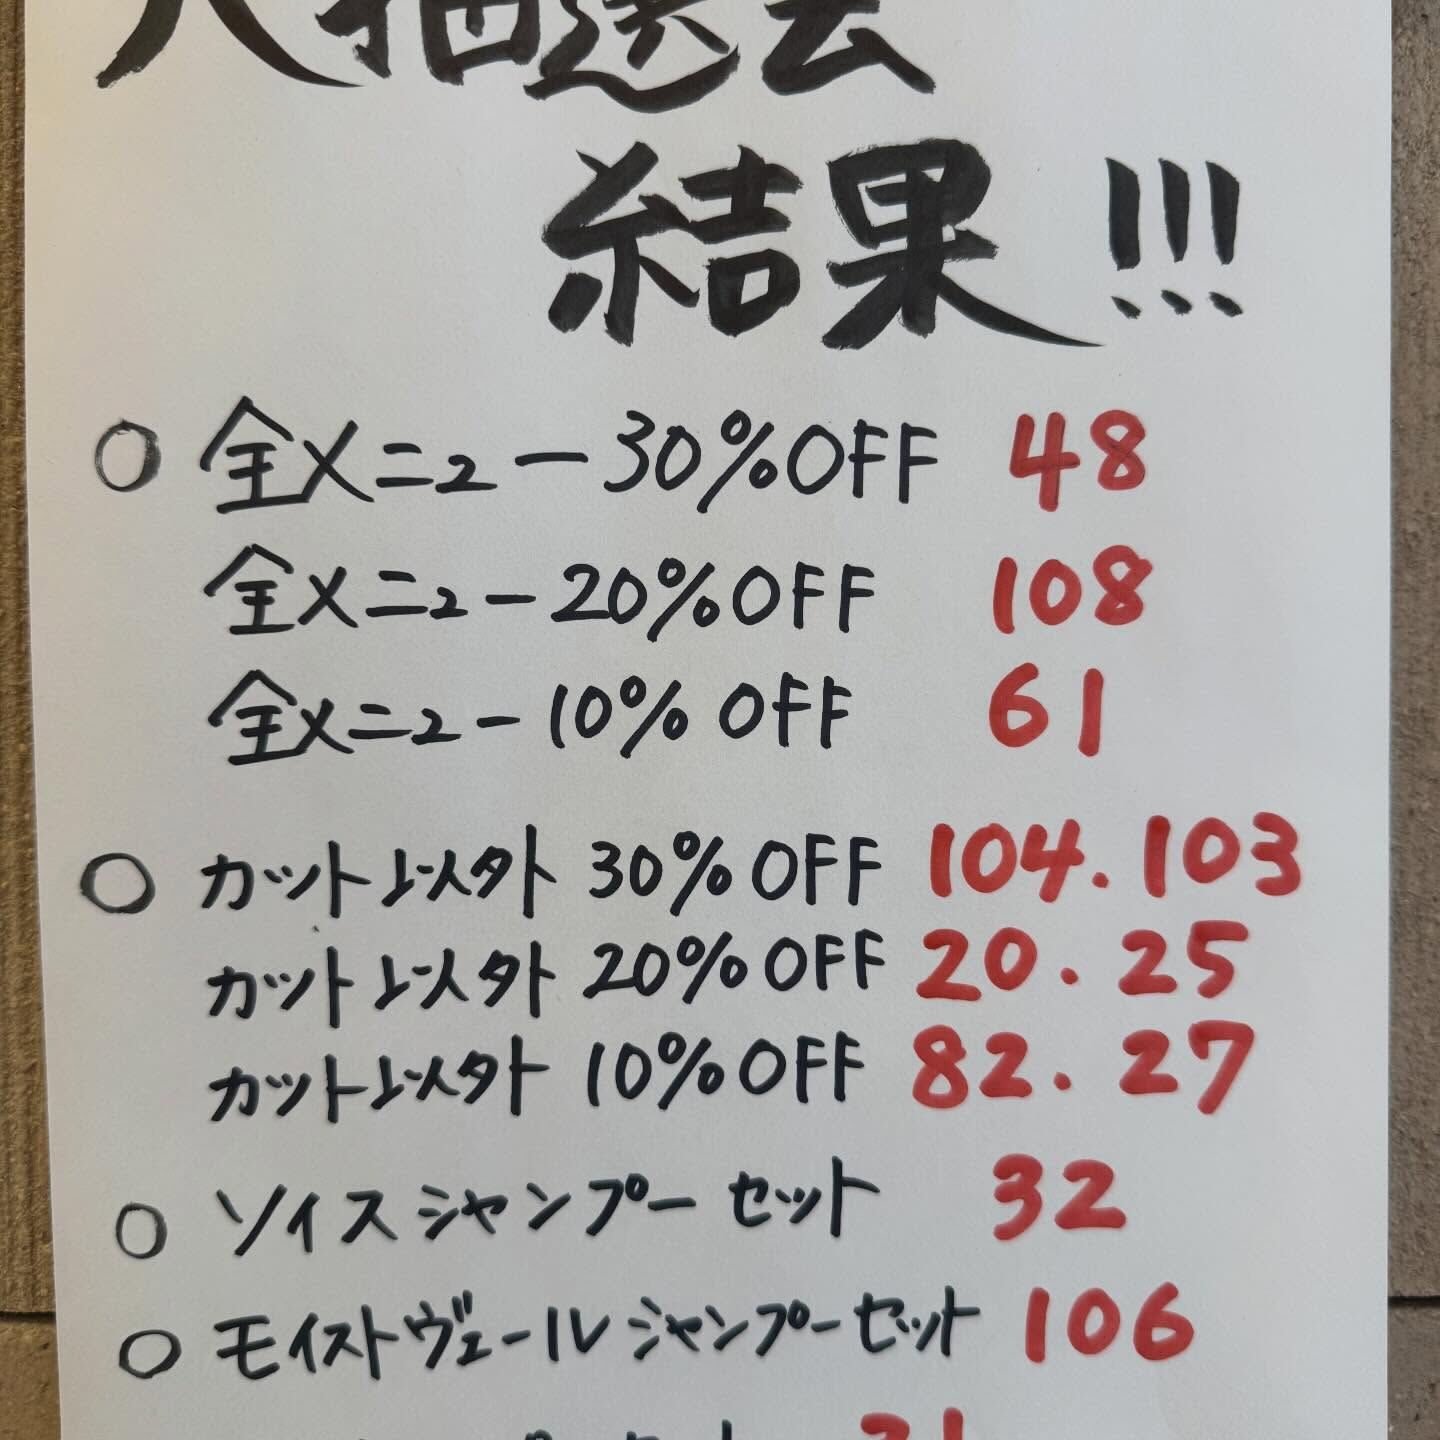 大抽選会
結果!!!
○ 全メニュー30%OFF 48
全メニュー20%OFF 108
全メニュー10%OFF 61
○ カット以外 30%OFF 104.103
カット以外 20%OFF 20.25
カット以外 10%OFF 82.27
○ ソイスシャンプーセット 32
○ モイストヴェールシャンプーセット 106
31